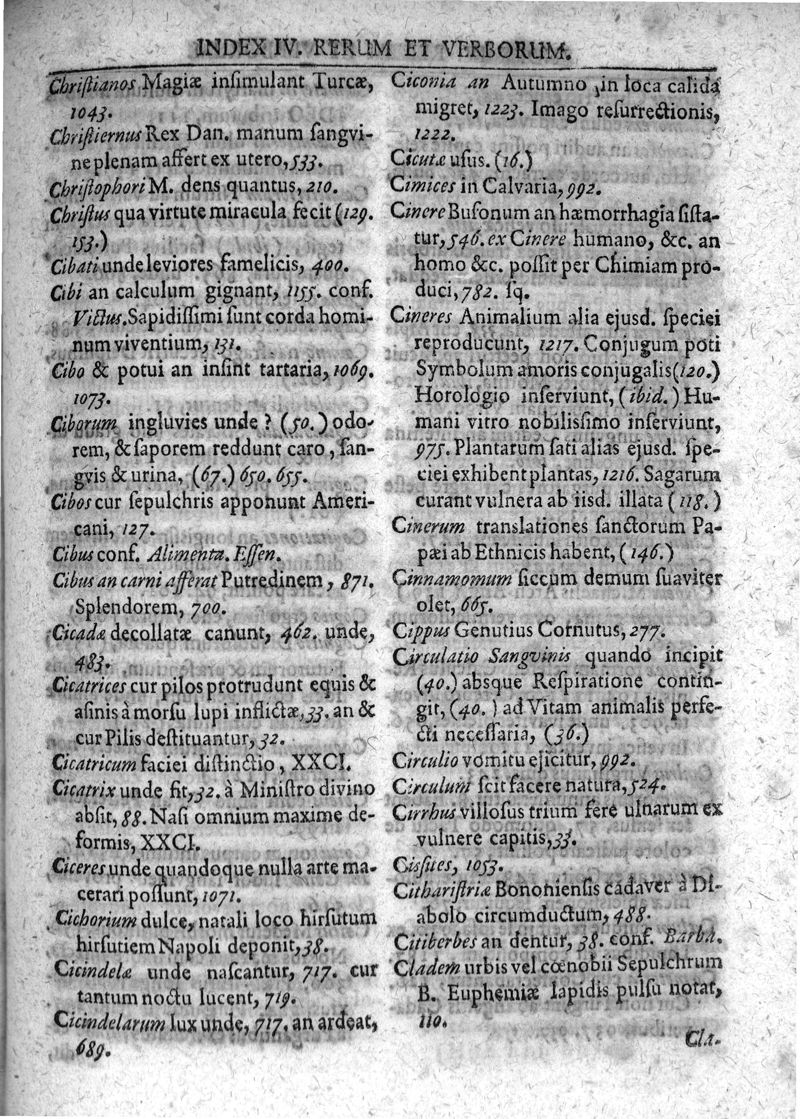 INDEX IV. RERUM ET VERBORUM.
Chriſtianos Magiæ inſimulant Turcæ,
1043.
Chriſtiernus Rex Dan. manum ſangvi-
ne plenam affert ex utero, 533.
Chriſtophori M. dens quantus, 210.
Chriſtus qua virtute miracula fecit (129.
153.)
Cibati unde leviores famelicis, 400.
Cibi an calculum gignant, 1155. conf.
Victus. Sapidiſſimi ſunt corda homi-
num viventium, 131.
Cibo & potui an inſint tartaria, 1069.
1073.
Ciborum ingluvies unde? (50.) odo-
rem, & ſaporem reddunt caro, ſan-
gvis & urina, (67.) 650. 655.
Cibos cur ſepulchris apponunt Ameri-
cani, 127.
Cibus conf. Alimenta. Eſſen.
Cibus an carni afferat Putredinem, 871.
Splendorem, 700.
Cicadæ decollatæ canunt, 462. unde,
483.
Cicatrices cur pilos protrudunt equis &
aſinis à morſu lupi inflictæ, 33. an &
cur Pilis deſtituantur, 32.
Cicatricum faciei diſtinctio, XXCI.
Cicatrix unde fit, 32. à Miniſtro divino
abſit, 88. Naſi omnium maxime de-
formis, XXCI.
Ciceres unde quandoque nulla arte ma-
cerari poſſunt, 1071.
Cichorium dulce, natali loco hirſutum
hirſutiem Napoli deponit, 38.
Cicindelæ unde naſcantur, 717. cur
tantum noctu lucent, 719.
Cicindelarum lux unde, 717. an ardeat,
689.
Ciconia an Autumno in loca calida
migret, 1223. Imago reſurrectionis,
1222.
Cicutæ uſus. (16.)
Cimices in Calvaria, 992.
Cinere Bufonum an hæmorrhagia ſiſta-
tur, 546. ex Cinere humano, &c. an
homo &c. poſſit per Chimiam pro-
duci, 782. ſq.
Cineres Animalium alia ejusd. ſpeciei
reproducunt, 1217. Conjugum poti
Symbolum amoris conjugalis (120.)
Horologio inſerviunt, (ibid.) Hu-
mani vitro nobiliſſimo inſerviunt,
975. Plantarum ſati alias ejusd. ſpe-
ciei exhibent plantas, 1216. Sagarum
curant vulnera ab iisd. illata (118.)
Cinerum translationes ſanctorum Pa-
pæi ab Ethnicis habent, (146.)
Cinnamomum ſiccum demum ſuaviter
olet, 665.
Cippus Genutius Cornutus, 277.
Circulatio Sangvinis quando incipit
(40.) absque Reſpiratione contin-
git, (40.) ad Vitam animalis perfe-
cti neceſſaria, (36.)
Circulio vomitu ejicitur, 992.
Circulum ſcit facere natura, 524.
Cirrhus villoſus trium fere ulnarum ex
vulnere capitis, 33.
Ciſſues, 1053.
Cithariſtriæ Bononienſis cadaver à Di-
abolo circumductum, 488.
Citiberbes an dentur, 38. conf. Barba.
Cladem urbis vel cœnobii Sepulchrum
B. Euphemiæ lapidis pulſu notat,
110.
Cla-